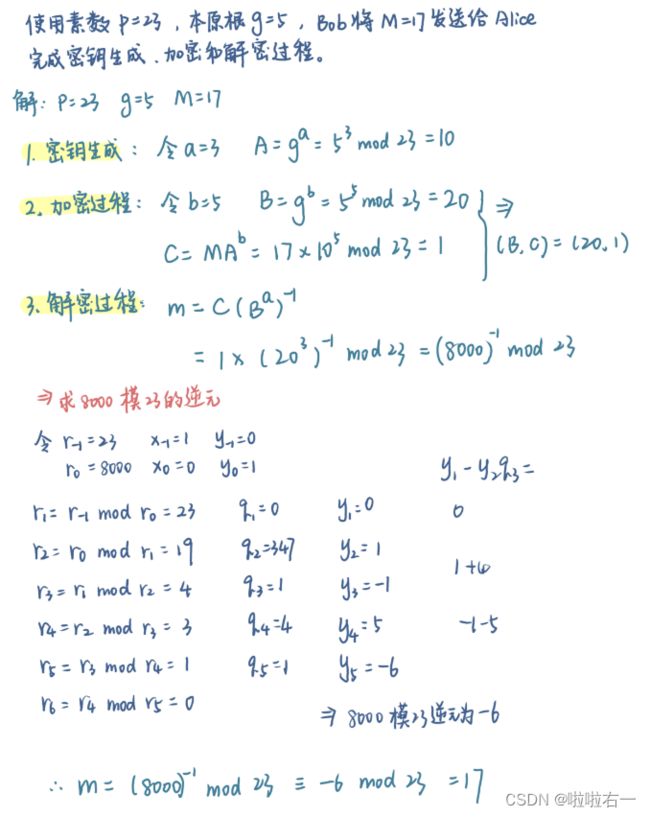 使用素数 P=23，本原根 g=5，Bob将 M=17 发送给 Alice
完成密钥生成、加密和解密过程。
解：P=23 g=5 M=17
1. 密钥生成： 令 a=3 A=gᵃ=5³ mod 23=10
2. 加密过程： 令 b=5 B=gᵇ=5⁵ mod 23=20
C=MAᵇ=17×10⁵ mod 23=1
⇒ (B,C)=(20,1)
3. 解密过程： m=C(Bᵃ)⁻¹
=1×(20³)⁻¹ mod 23=(8000)⁻¹ mod 23
⇒ 求 8000 模 23 的逆元
令 r₋₁=23 x₋₁=1 y₋₁=0
r₀=8000 x₀=0 y₀=1 y₁-y₂q₃=
r₁=r₋₁ mod r₀=23 q₁=0 y₁=0 0
r₂=r₀ mod r₁=19 q₂=347 y₂=1
1+4
r₃=r₁ mod r₂=4 q₃=1 y₃=-1
r₄=r₂ mod r₃=3 q₄=4 y₄=5 -1-5
r₅=r₃ mod r₄=1 q₅=1 y₅=-6
r₆=r₄ mod r₅=0
⇒ 8000 模 23 逆元为 -6
∴ m=(8000)⁻¹ mod 23 ≡ -6 mod 23 =17
CSDN @啦啦右一